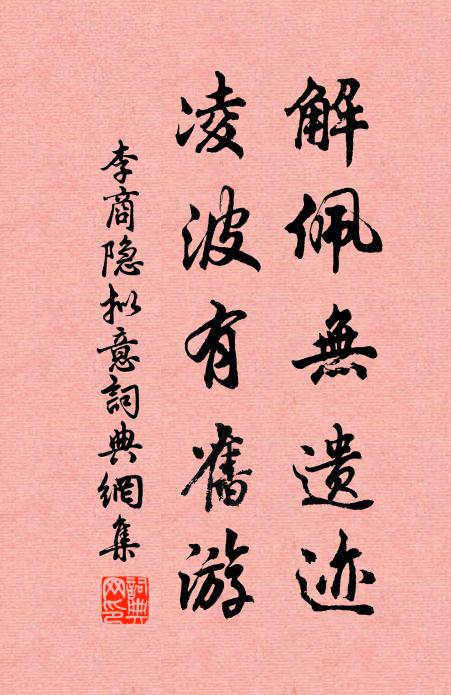 解佩無遗迹
凌波有舊游
李商隐拟意詞典網集
詞典網印